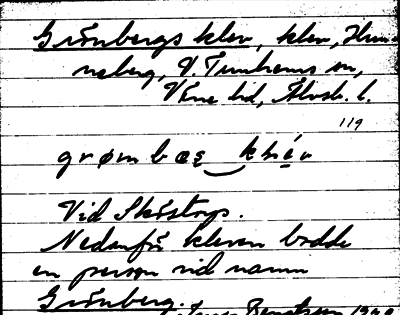 Grönbergs klev, klev, Hun-
neberg, V. Tunhems sn,
Väne hd, Älvsb. l.
119
grømbæs‿klév
Vid Skörstorp.
Nedanför kleven bodde
en person vid namn
Grönberg.